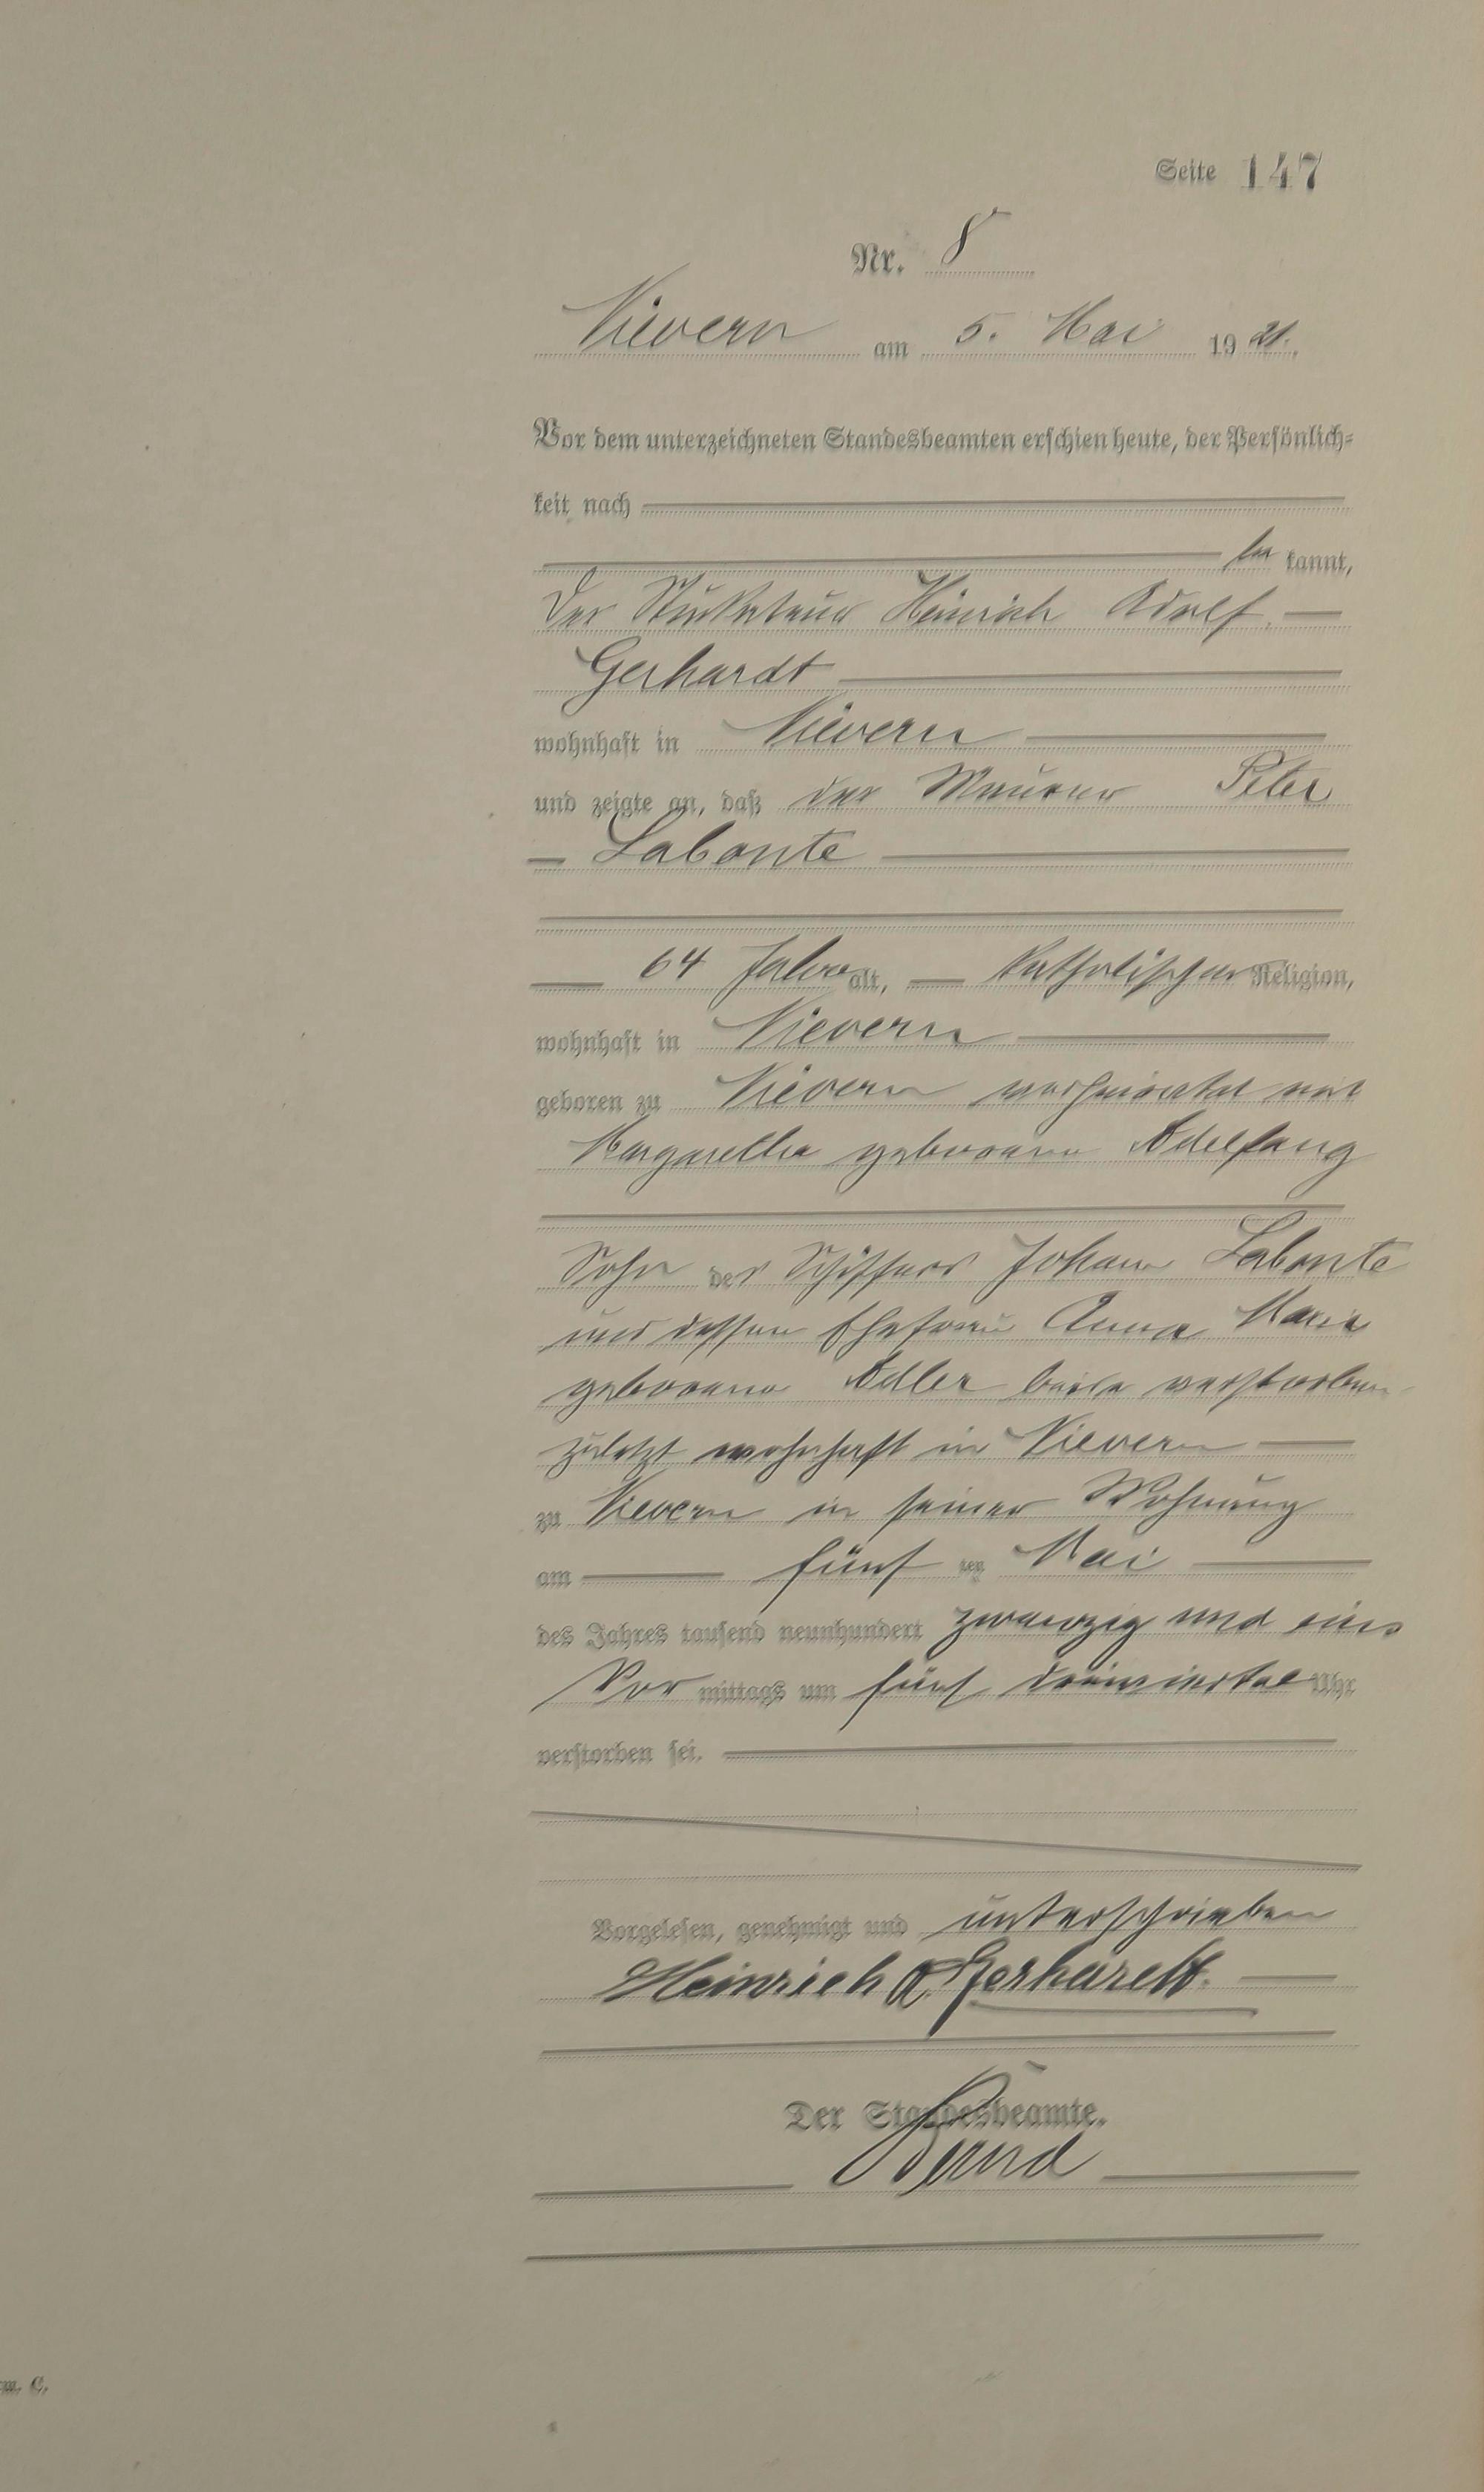 Seite 147
Nr. 8
Nievern am 5. Mai 1921.
Vor dem unterzeichneten Standesbeamten erschien heute, der Persönlich-
keit nach
be kannt,
der Stukateur Heinrich Adolf
Gerhardt
wohnhaft in Nievern
und zeigte an, daß der Maurer Peter
Labonte
64 Jahre alt, katholischer Religion,
wohnhaft in Nievern
geboren zu Nievern verheiratet mit
Margaretha geborene Adelfang
Sohn des Schiffers Johann Labonte
und dessen Ehefrau Anna Maria
geborene Adler beide verstorben
zuletzt wohnhaft in Nievern
zu Nievern in seiner Wohnung
am fünf ten Mai
des Jahres tausend neunhundert zwanzig und eins
Vor mittags um fünf dreiviertel Uhr
verstorben sei.
Vorgelesen, genehmigt und unterschrieben
Heinrich A. Gerhardt.
Der Standesbeamte.
Bernd
rm. C.